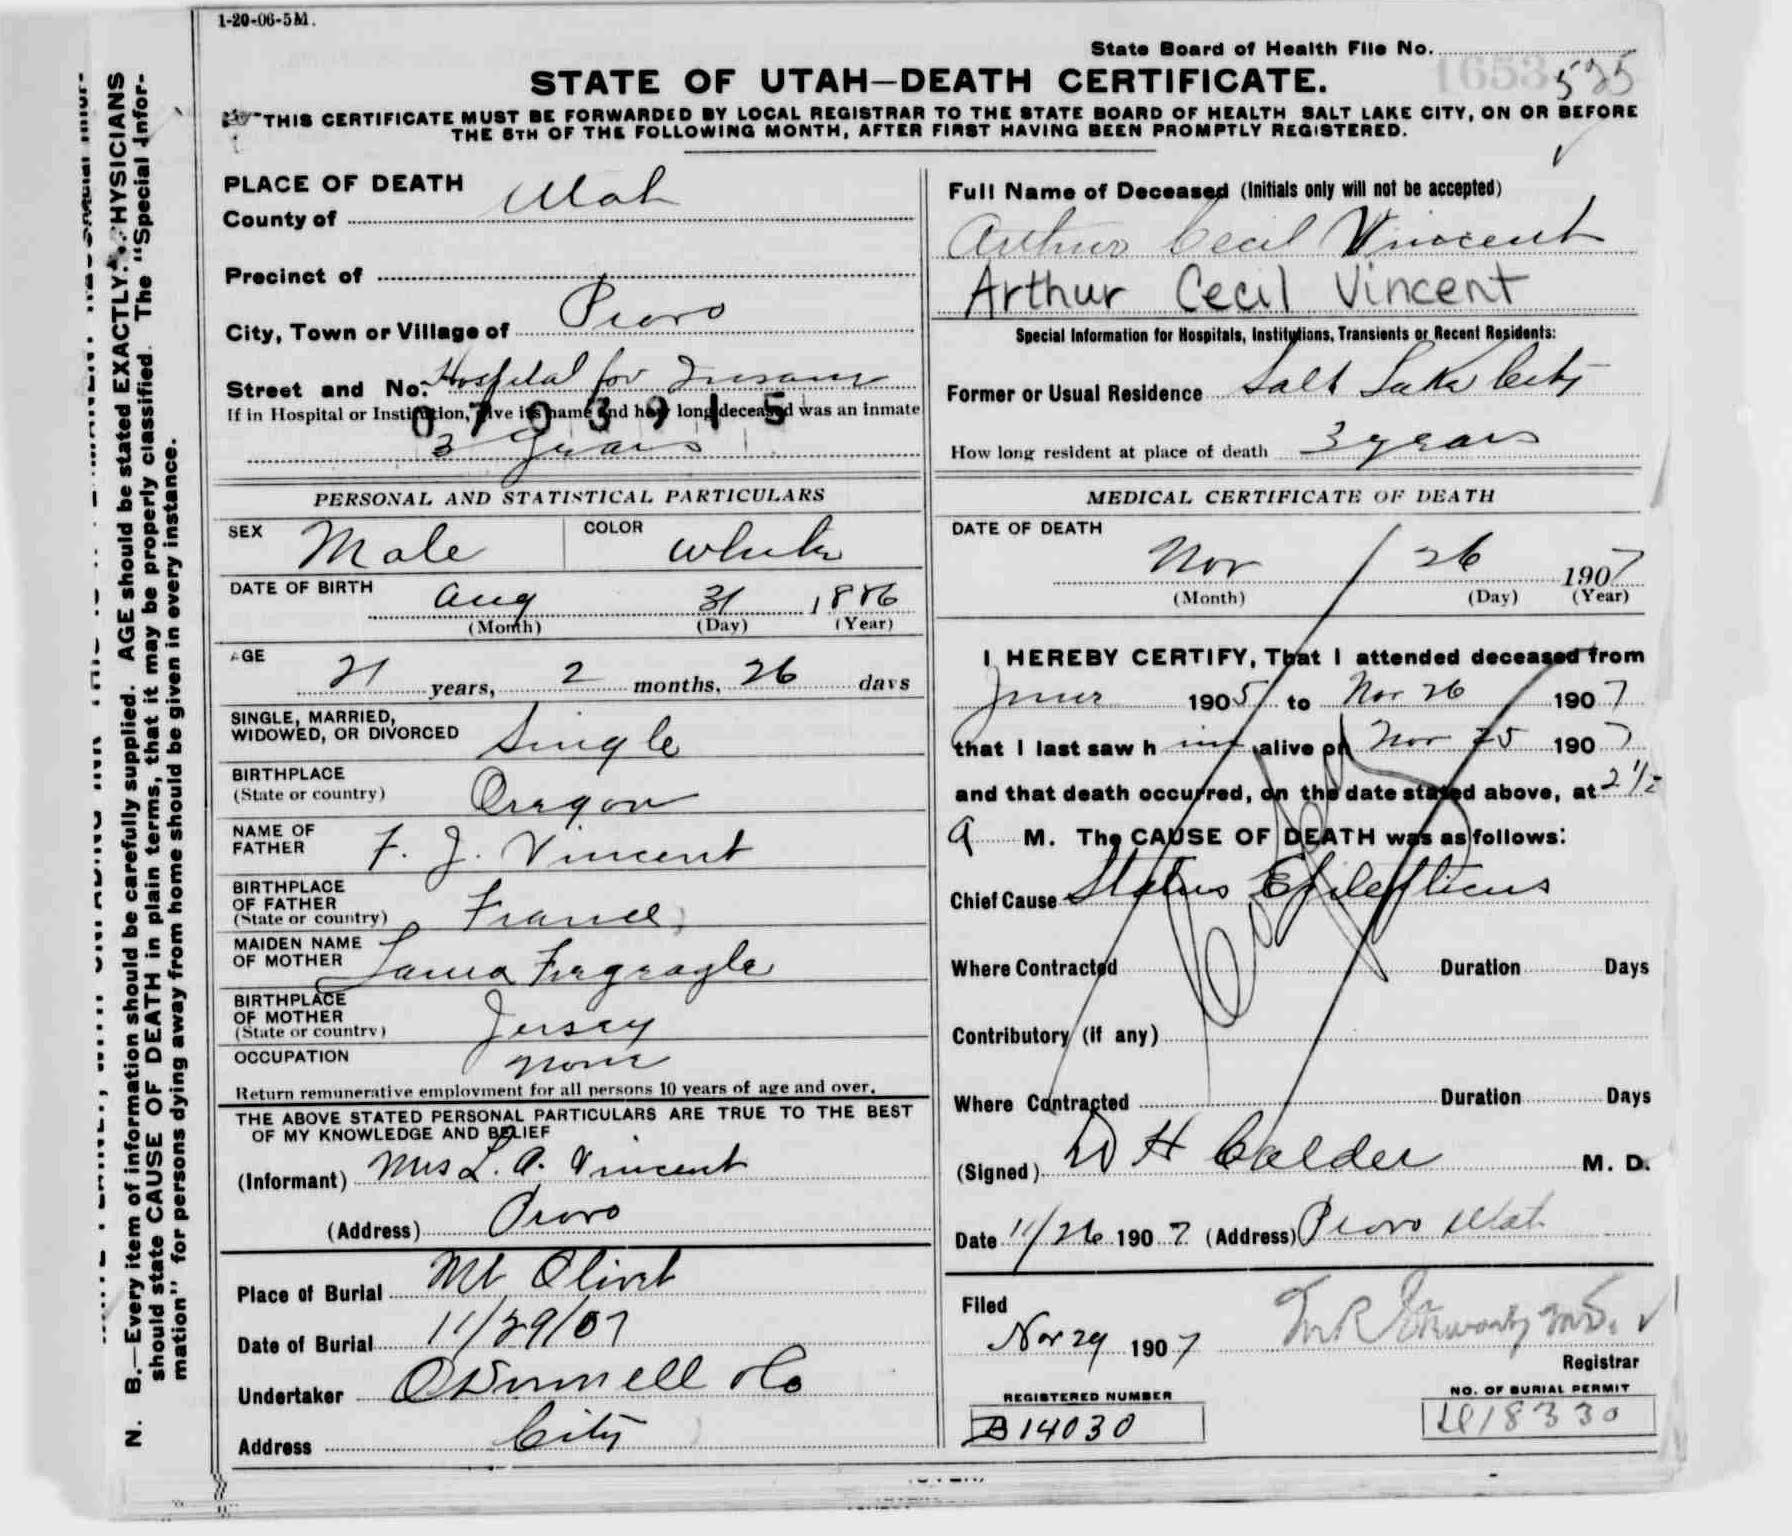 1-20-06-5M.
State Board of Health File No.
1653 525
STATE OF UTAH—DEATH CERTIFICATE.
THIS CERTIFICATE MUST BE FORWARDED BY LOCAL REGISTRAR TO THE STATE BOARD OF HEALTH SALT LAKE CITY, ON OR BEFORE
THE 5TH OF THE FOLLOWING MONTH, AFTER FIRST HAVING BEEN PROMPTLY REGISTERED.
N. B.—Every item of information should be carefully supplied. AGE should be stated EXACTLY. PHYSICIANS
should state CAUSE OF DEATH in plain terms, that it may be properly classified. The "Special Infor-
mation" for persons dying away from home should be given in every instance.
PLACE OF DEATH
County of Utah
Precinct of
City, Town or Village of Provo
Street and No. Hospital for Insane
If in Hospital or Institution, give its name and how long deceased was an inmate
0703915
3 years
PERSONAL AND STATISTICAL PARTICULARS
SEX Male COLOR White
DATE OF BIRTH
Aug 31 1886
(Month) (Day) (Year)
AGE
21 years, 2 months, 26 days
SINGLE, MARRIED,
WIDOWED, OR DIVORCED Single
BIRTHPLACE
(State or country) Oregon
NAME OF
FATHER F. J. Vincent
BIRTHPLACE
OF FATHER
(State or country) France
MAIDEN NAME
OF MOTHER
BIRTHPLACE
OF MOTHER
(State or country) Jersey
OCCUPATION None
Return remunerative employment for all persons 10 years of age and over.
THE ABOVE STATED PERSONAL PARTICULARS ARE TRUE TO THE BEST
OF MY KNOWLEDGE AND BELIEF
(Informant) Mrs L. A. Vincent
(Address) Provo
Place of Burial Mt Olivet
Date of Burial 11/29/07
Undertaker O'Donnell & Co
Address City
Full Name of Deceased (Initials only will not be accepted)
Arthur Cecil Vincent
Arthur Cecil Vincent
Special Information for Hospitals, Institutions, Transients or Recent Residents:
Former or Usual Residence Salt Lake City
How long resident at place of death 3 years
MEDICAL CERTIFICATE OF DEATH
DATE OF DEATH
Nov 26 1907
(Month) (Day) (Year)
I HEREBY CERTIFY, That I attended deceased from
1905 to Nov 26 1907
that I last saw h im alive on Nov 25 1907
and that death occurred, on the date stated above, at 2 1/2
A M. The CAUSE OF DEATH was as follows:
Chief Cause Status Epilepticus
Where Contracted Duration Days
Contributory (if any)
Where Contracted Duration Days
(Signed) D H Calder M. D.
Date 11/26 1907 (Address) Provo Utah
Filed
Nov 29 1907
Registrar
REGISTERED NUMBER
B14030
NO. OF BURIAL PERMIT
18330